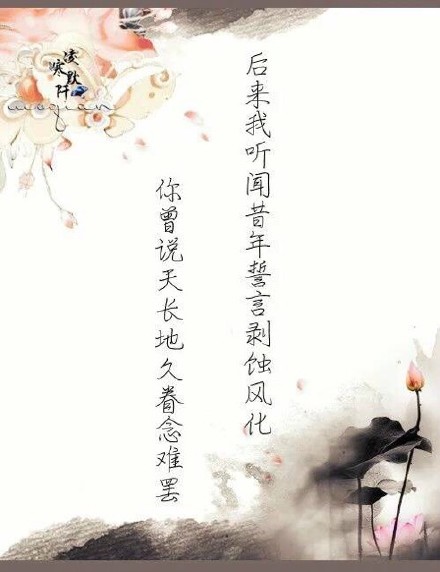 后来我听闻昔年誓言剥蚀风化
你曾说天长地久眷念难罢
凌默
寒阡
moqian